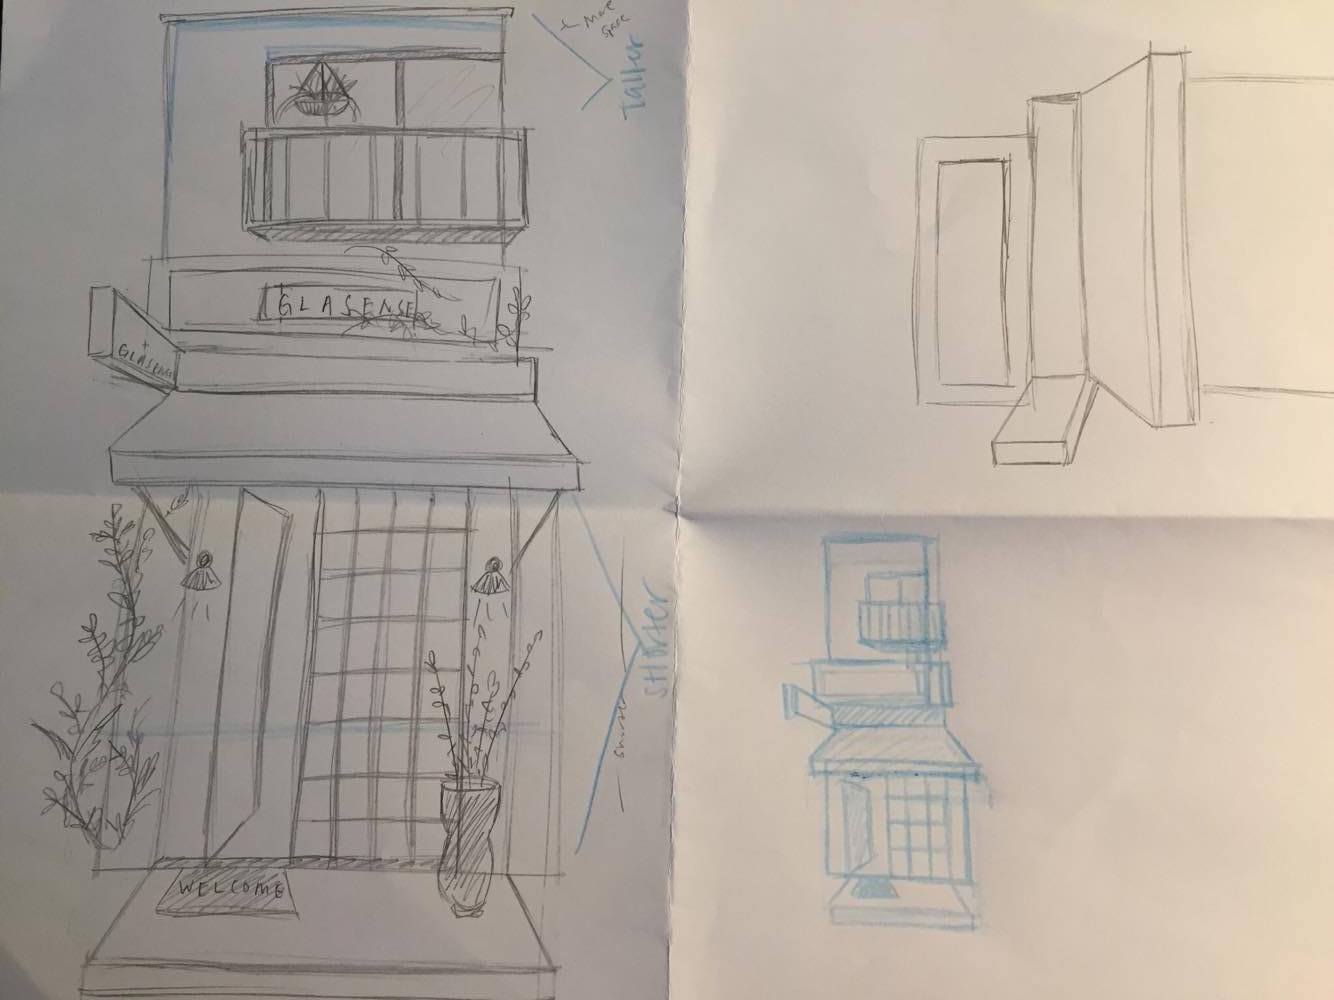 + More
space
Taller
GLASENSE
+
GLASENSE
SHOrter
WELCOME